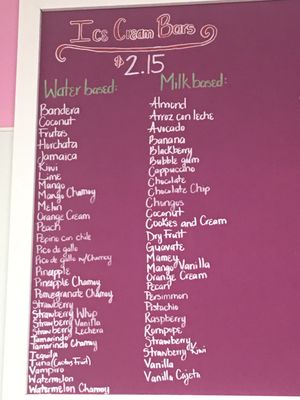 Ice Cream Bars
$2.15
Water based:
Bandera
Coconut
Frutas
Horchata
Jamaica
Kiwi
Lime
Mango
Mango Chamoy
Melon
Orange Cream
Peach
Pepino con chile
Pico de gallo
Pico de gallo w/Chamoy
Pineapple
Pineapple Chamoy
Pomegranate Chamoy
Strawberry
Strawberry Whip
Strawberry Vanilla
Strawberry Lechera
Tamarindo
Tamarindo Chamoy
Tequila
Tuna (Cactus Fruit)
Vampiro
Watermelon
Watermelon Chamoy
Milk based:
Almond
Arroz con leche
Avocado
Banana
Blackberry
Bubble gum
Cappuccino
Chocolate
Chocolate Chip
Chongus
Coconut
Cookies and Cream
Dry Fruit
Guavate
Mamey
Mango Vanilla
Orange Cream
Pecan
Persimmon
Pistachio
Raspberry
Rompope
Strawberry
Strawberry Kiwi
Vanilla
Vanilla Cajeta